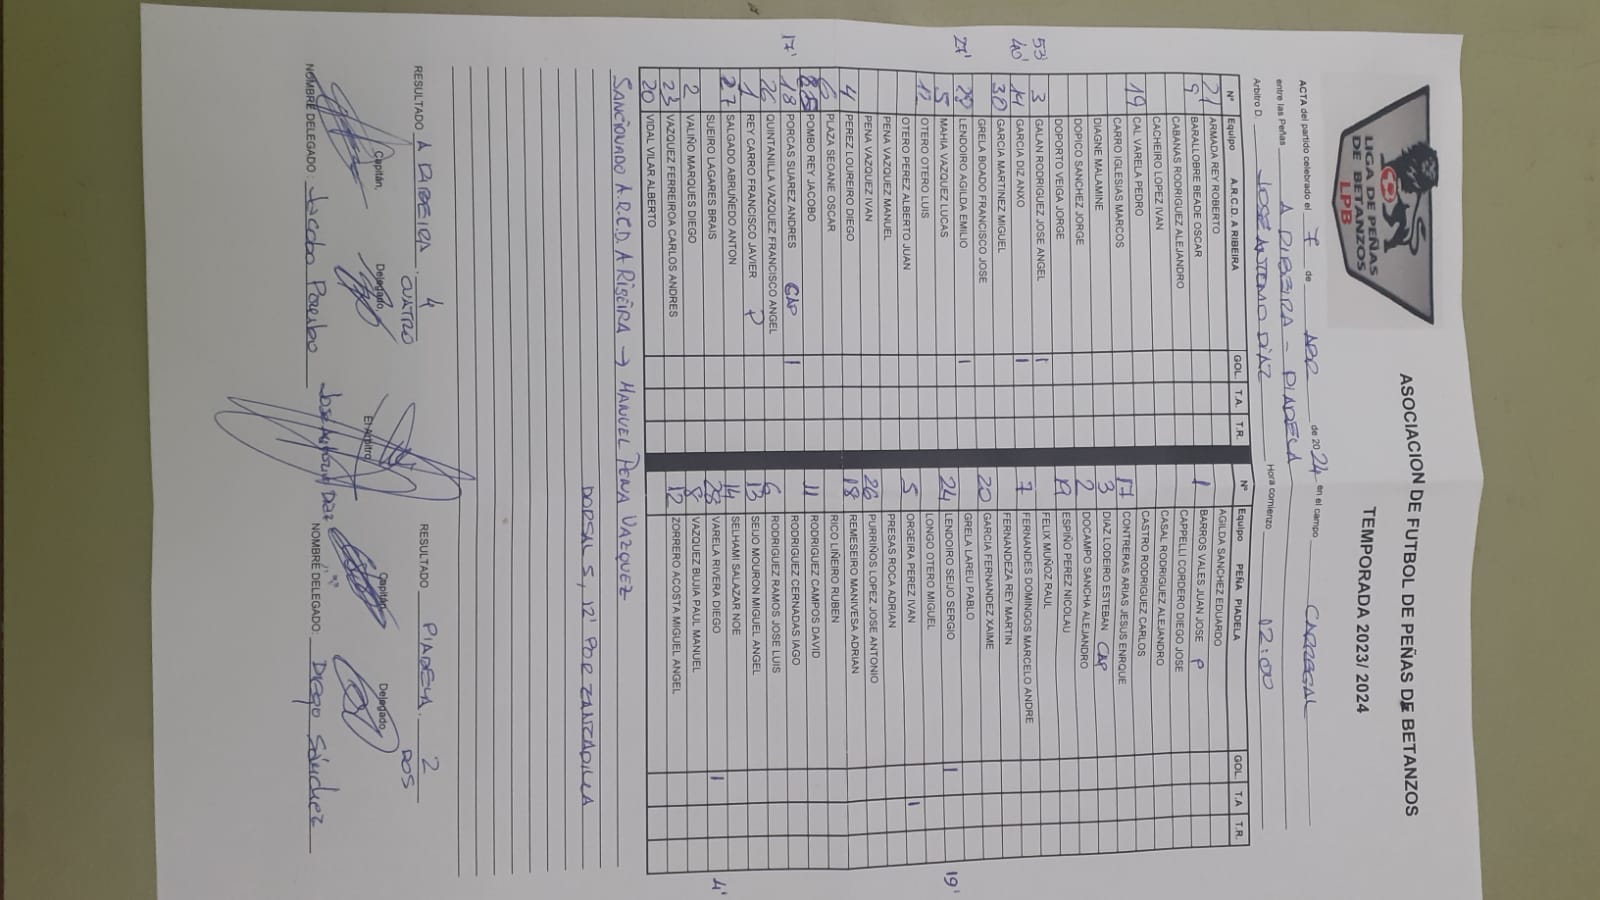 LIGA DE PEÑAS
DE BETANZOS
LPB
ASOCIACION DE FUTBOL DE PEÑAS DE BETANZOS
TEMPORADA 2023/ 2024
ACTA del partido celebrado el 7 de ABR de 2024 en el campo CARREGAL
entre las Peñas A RIBEIRA - PIADELA
Arbitro D. JOSE ANTONIO DÍAZ Hora comienzo 12:00
Nº Equipo A.R.C.D. A RIBEIRA GOL. T.A. T.R.
21 ARMADA REY ROBERTO
9 BARALLOBRE BEADE OSCAR
CABANAS RODRIGUEZ ALEJANDRO
CACHEIRO LOPEZ IVAN
19 CAL VARELA PEDRO
CARRO IGLESIAS MARCOS
DIAGNE MALAMINE
DOPICO SANCHEZ JORGE
DOPORTO VEIGA JORGE
53' 3 GALAN RODRIGUEZ JOSE ANGEL 1
40' 14 GARCIA DIZ ANXO 1
30 GARCIA MARTINEZ MIGUEL
GRELA BOADO FRANCISCO JOSE
27' 29 LENDOIRO AGILDA EMILIO 1
5 MAHIA VAZQUEZ LUCAS
12 OTERO OTERO LUIS
OTERO PEREZ ALBERTO JUAN
PENA VAZQUEZ MANUEL
PENA VAZQUEZ IVAN
4 PEREZ LOUREIRO DIEGO
6 PLAZA SEOANE OSCAR
POMBO REY JACOBO
17' 18 PORCAS SUAREZ ANDRES CAP 1
26 QUINTANILLA VAZQUEZ FRANCISCO ANGEL
1 REY CARRO FRANCISCO JAVIER P
27 SALGADO ABRUÑEDO ANTON
SUEIRO LAGARES BRAIS
2 VALIÑO MARQUES DIEGO
23 VAZQUEZ FERREIROA CARLOS ANDRES
20 VIDAL VILAR ALBERTO
Nº Equipo PEÑA PIADELA GOL. T.A T.R.
AGILDA SANCHEZ EDUARDO
1 BARROS VALES JUAN JOSE P
CAPPELLI CORDERO DIEGO JOSE
CASAL RODRIGUEZ ALEJANDRO
CASTRO RODRIGUEZ CARLOS
17 CONTRERAS ARIAS JESUS ENRQUE
3 DIAZ LODEIRO ESTEBAN CAP
2 DOCAMPO SANCHA ALEJANDRO
19 ESPIÑO PEREZ NICOLAU
FELIX MUÑOZ RAUL
7 FERNANDES DOMINGOS MARCELO ANDRE
FERNANDEZA REY MARTIN
20 GARCIA FERNANDEZ XAIME
GRELA LAREU PABLO
24 LENDOIRO SEIJO SERGIO 1 19'
LONGO OTERO MIGUEL
5 ORGEIRA PEREZ IVAN 1
PRESAS ROCA ADRIAN
26 PURRIÑOS LOPEZ JOSE ANTONIO
18 REMESEIRO MANIVESA ADRIAN
RICO LIÑEIRO RUBEN
11 RODRIGUEZ CAMPOS DAVID
RODRIGUEZ CERNADAS IAGO
6 RODRIGUEZ RAMOS JOSE LUIS
13 SEIJO MOURON MIGUEL ANGEL
14 SELHAMI SALAZAR NOE
28 VARELA RIVERA DIEGO 1 4'
8 VAZQUEZ BUJIA PAUL MANUEL
12 ZORRERO ACOSTA MIGUEL ANGEL
SANCIONADO A.R.C.D. A RIBEIRA → MANUEL PENA VAZQUEZ
DORSAL 5, 12' POR ZANCADILLA
RESULTADO A RIBEIRA. 4 CUATRO
RESULTADO PIADELA. 2 DOS
Capitán, Delegado, El Arbitro Capitán, Delegado,
NOMBRE DELEGADO: Jacobo
NOMBRE DELEGADO: Diego Sánchez